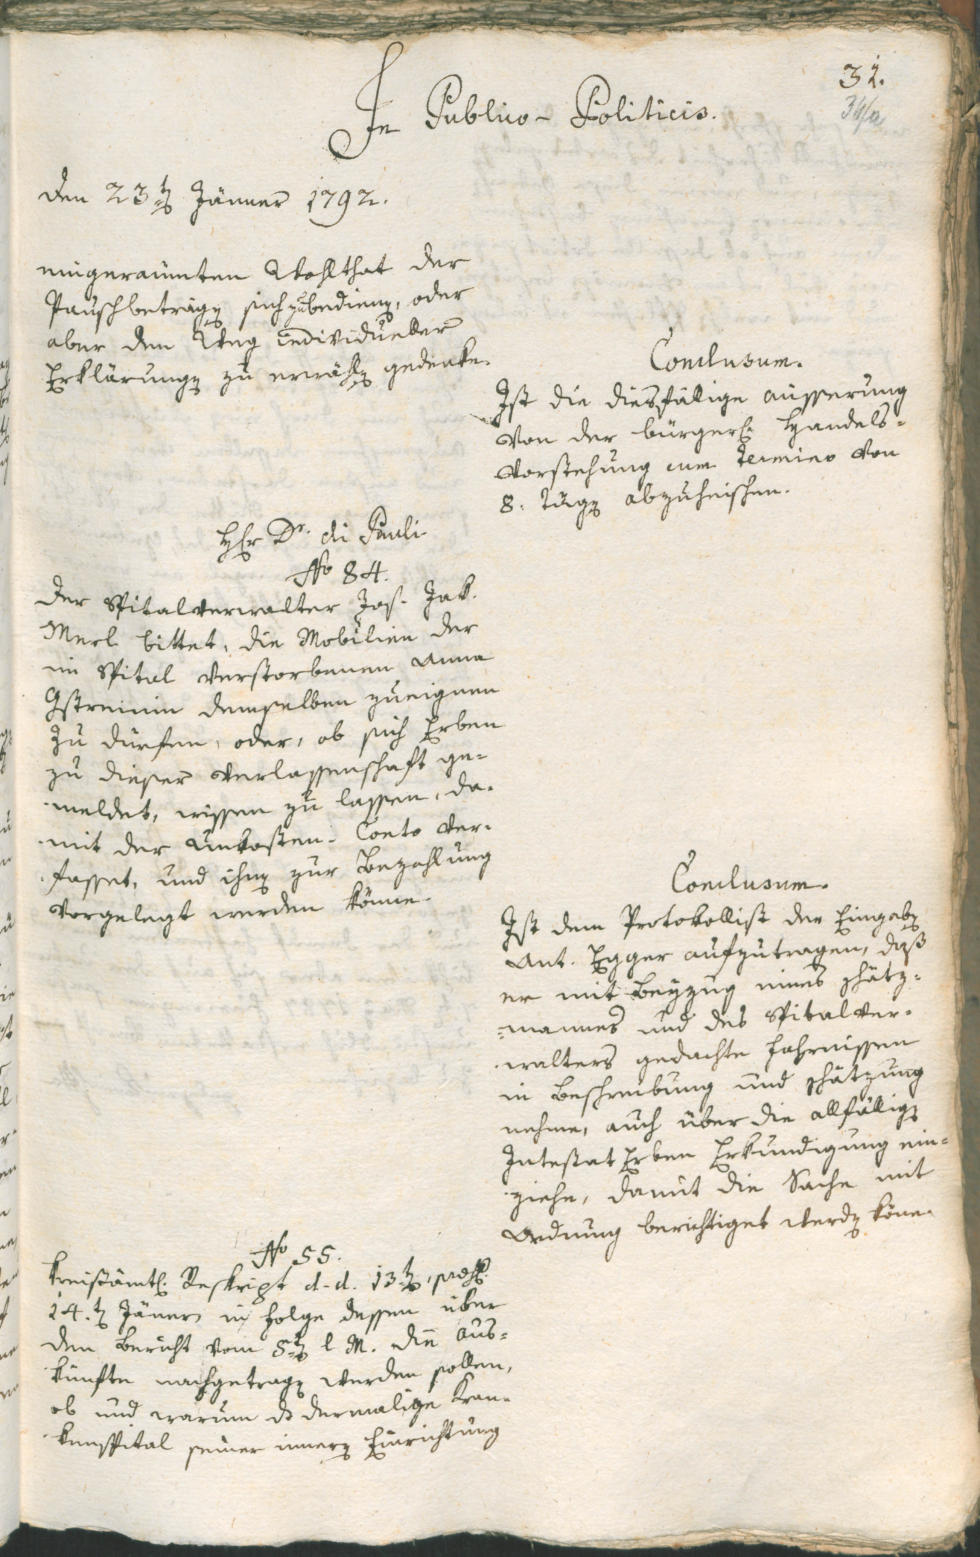 31.
34/a
In Publico-Politicis.
den 23t. Jänner 1792.
eingeraumten Wohlthat der
Pauschbeträge sich zubedienen, oder
aber den Weg individueller
Erklärungen zu erwählen gedenke.
Conclusum.
Ist die diesfällige äusserung
von der bürgerl. Handels-
vorstehung cum Termino von
8. Tägen abzuheischen.
Hr Dr. di Pauli
No 84.
Der Spitalverwalter Jos. Jak.
Merl bittet, die Mobilien der
im Spital verstorbenen Anna
Gstreinin demselben zueignen
zu dürfen, oder, ob sich Erben
zu dieser Verlassenschaft ge-
meldet, wissen zu lassen, da-
mit der Unkosten-Conto ver-
fasset, und ihnen zur Bezahlung
vorgelegt werden könne.
Conclusum.
Ist dem Protokollist der Eingaben
Ant. Egger aufzutragen, daß
er mit Beyzug eines schätz-
mannes und des Spitalver-
walters gedachte Fahrnissen
in Beschreibung und schätzung
nehme, auch über die allfälligen
Intestat Erben Erkundigung ein-
ziehe, damit die Sache mit
Ordnung berichtiget werden köne.
No 55.
Kreisämtl. Reskript d. d. 13ten, præs.
14.t Jäner in Folge dessen über
den Bericht vom 5ten l. M. die Aus-
künfte nachgetragen werden sollen,
ob und warum das dermalige Kran-
kenspital seiner innern Einrichtung